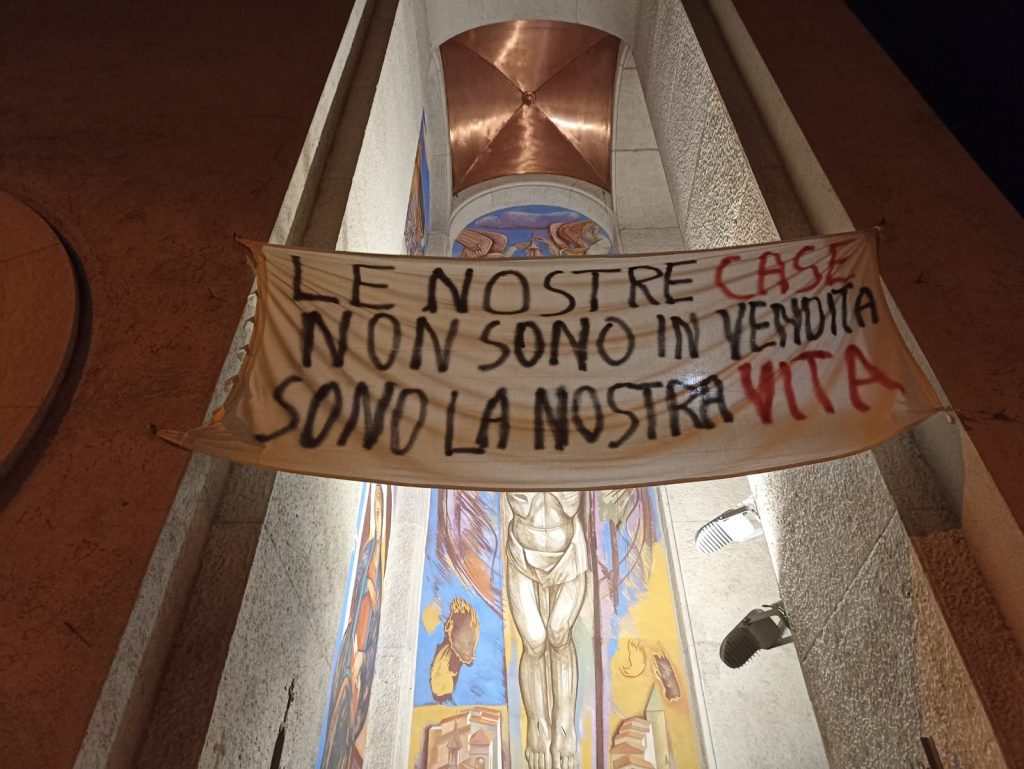 LE NOSTRE CASE
NON SONO IN VENDITA
SONO LA NOSTRA VITA